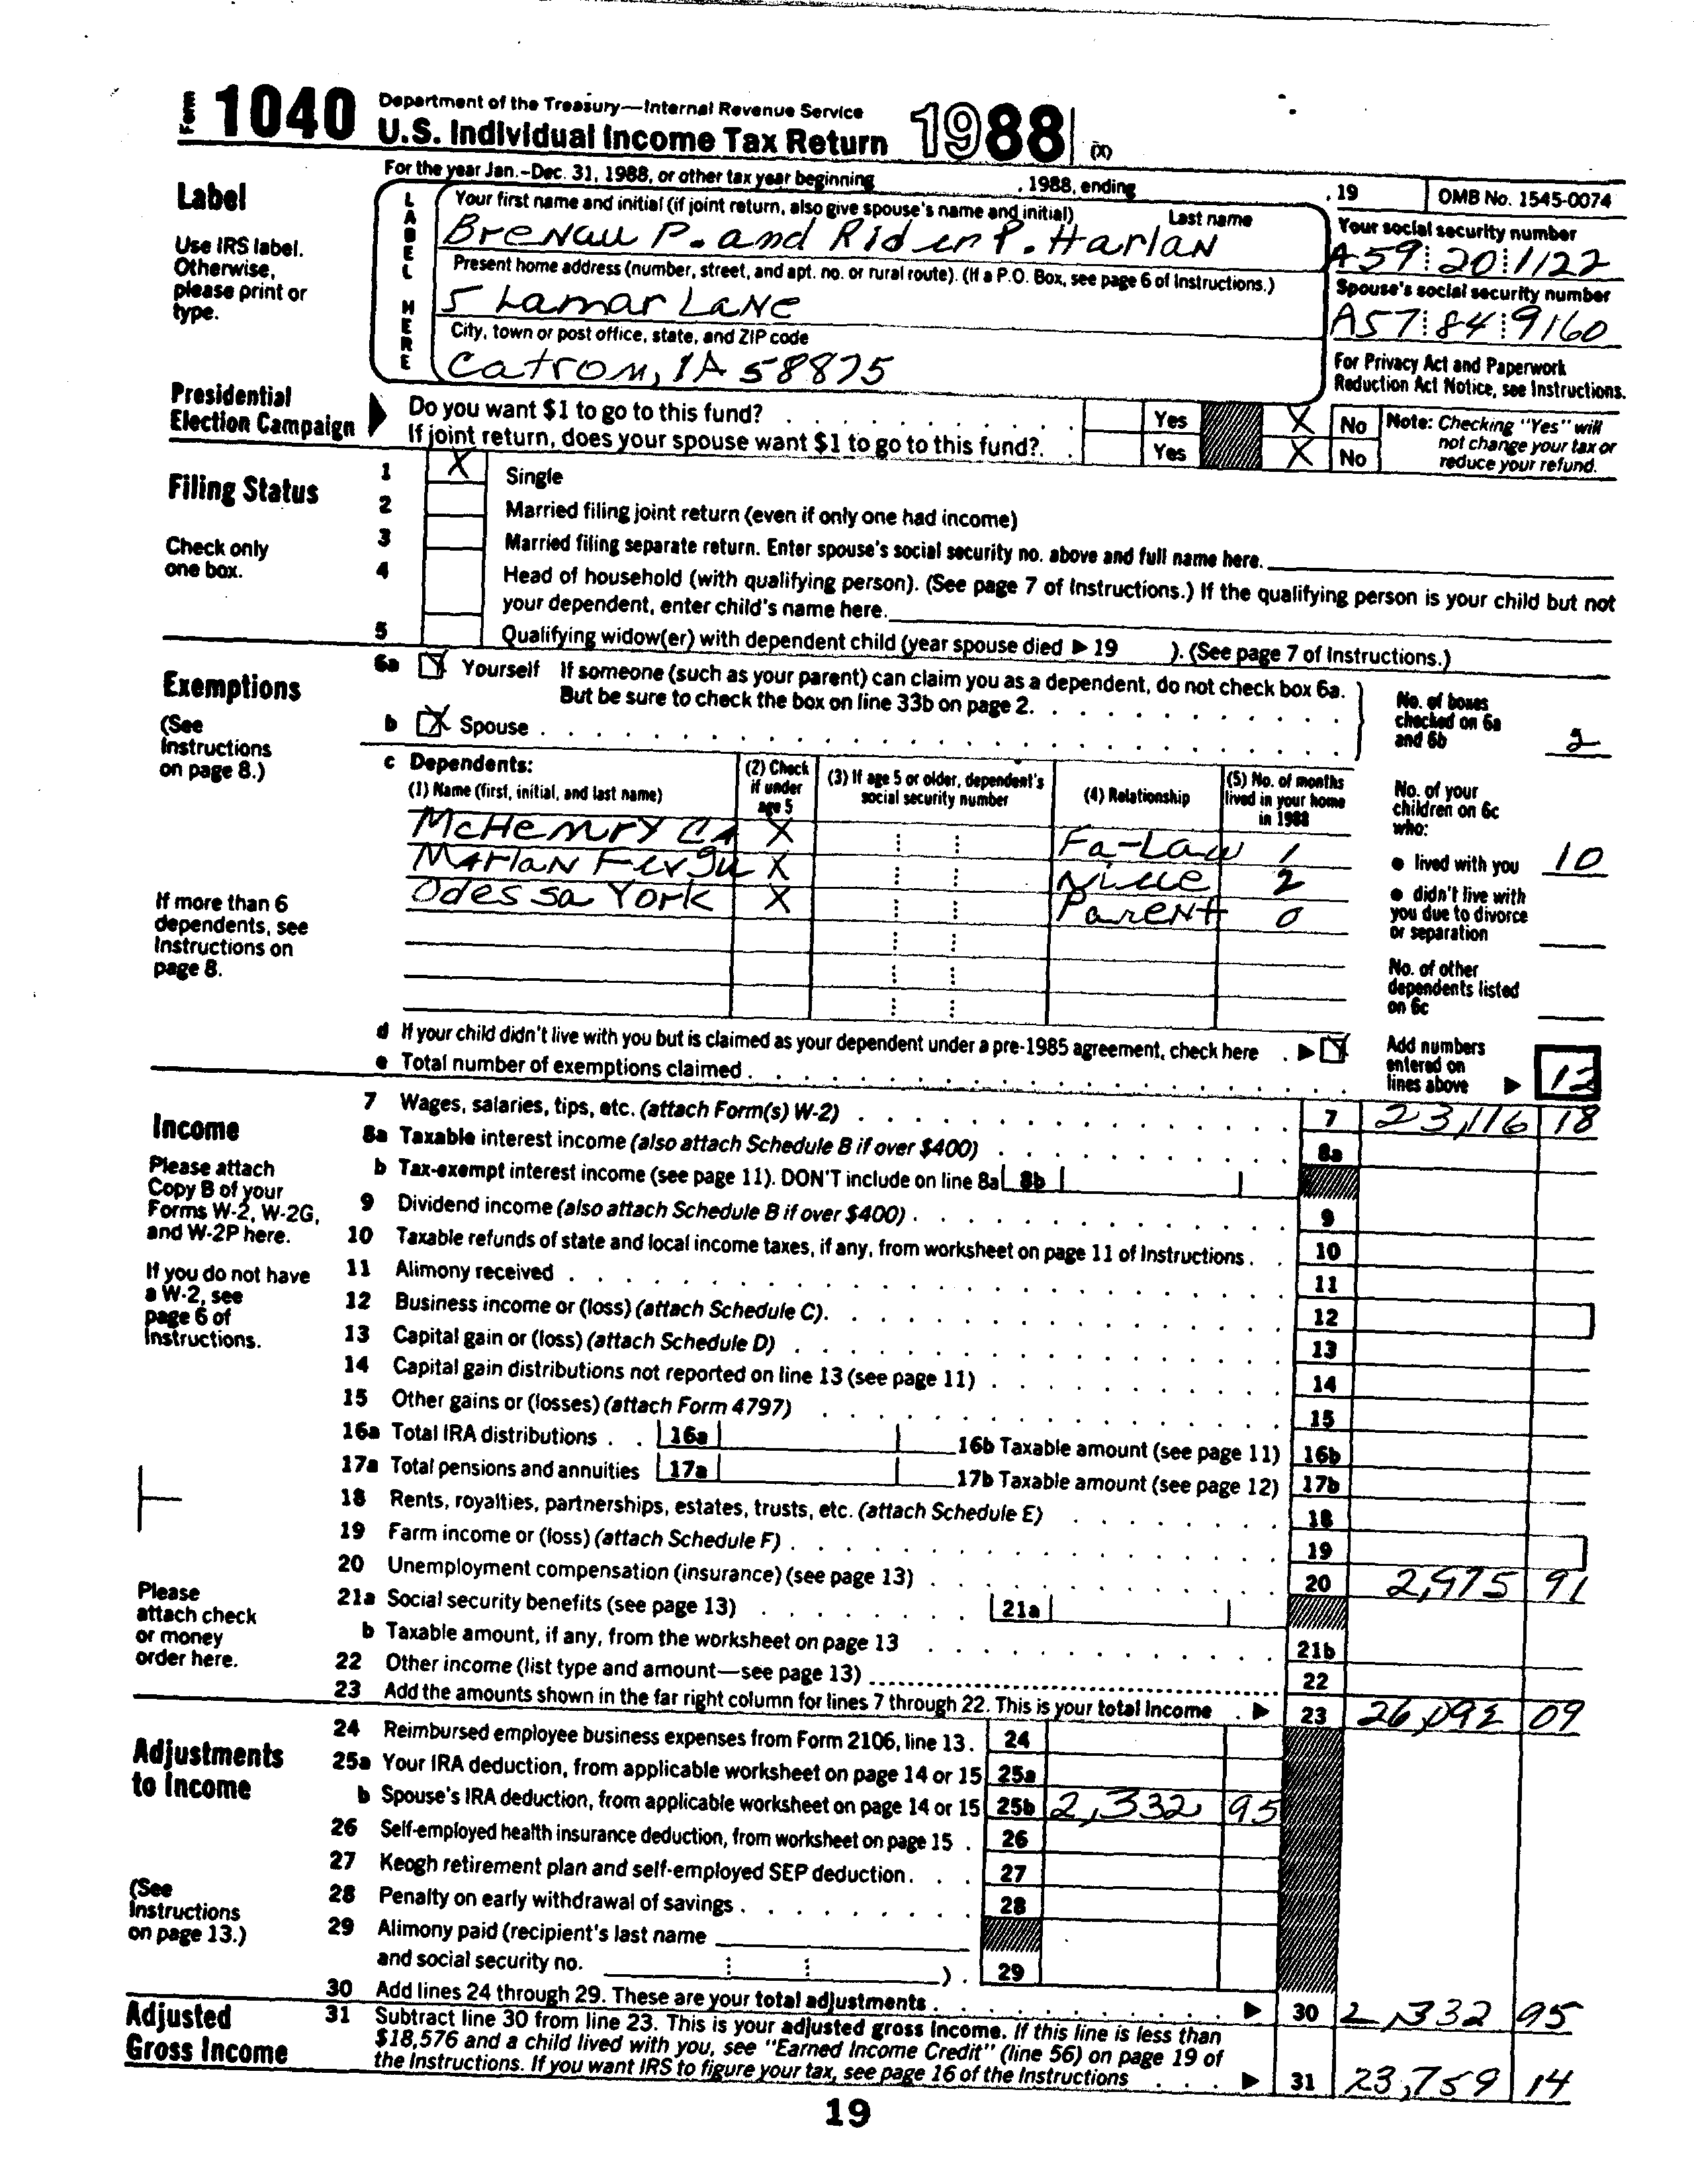 Form 1040 Department of the Treasury—Internal Revenue Service
U.S. Individual Income Tax Return 1988 (X)
For the year Jan.-Dec. 31, 1988, or other tax year beginning , 1988, ending , 19 OMB No. 1545-0074
Label
Use IRS label. Otherwise, please print or type.
LABEL HERE
Your first name and initial (if joint return, also give spouse's name and initial) Last name
Brenau P. and Rider P. Harlan
Your social security number
A59 20 1122
Present home address (number, street, and apt. no. or rural route). (If a P.O. Box, see page 6 of Instructions.)
5 Lamar Lane
Spouse's social security number
A57 84 9160
City, town or post office, state, and ZIP code
Catron, IA 58875
For Privacy Act and Paperwork Reduction Act Notice, see Instructions.
Presidential Election Campaign
Do you want $1 to go to this fund? Yes X No
If joint return, does your spouse want $1 to go to this fund? Yes X No
Note: Checking "Yes" will not change your tax or reduce your refund.
Filing Status
Check only one box.
1 X Single
2 Married filing joint return (even if only one had income)
3 Married filing separate return. Enter spouse's social security no. above and full name here.
4 Head of household (with qualifying person). (See page 7 of Instructions.) If the qualifying person is your child but not your dependent, enter child's name here.
5 Qualifying widow(er) with dependent child (year spouse died ▶ 19 ). (See page 7 of Instructions.)
Exemptions
(See Instructions on page 8.)
6a X Yourself If someone (such as your parent) can claim you as a dependent, do not check box 6a.
But be sure to check the box on line 33b on page 2.
b X Spouse
No. of boxes checked on 6a and 6b 2
c Dependents:
(1) Name (first, initial, and last name) (2) Check if under age 5 (3) If age 5 or older, dependent's social security number (4) Relationship (5) No. of months lived in your home in 1988
McHenry CA X Fa-Law 1
Marlan Fergu X Niece 2
Odessa York X Parent 0
No. of your children on 6c who:
● lived with you 10
● didn't live with you due to divorce or separation
No. of other dependents listed on 6c
If more than 6 dependents, see Instructions on page 8.
d If your child didn't live with you but is claimed as your dependent under a pre-1985 agreement, check here ▶ X
e Total number of exemptions claimed
Add numbers entered on lines above ▶ 12
Income
Please attach Copy B of your Forms W-2, W-2G, and W-2P here.
If you do not have a W-2, see page 6 of Instructions.
Please attach check or money order here.
7 Wages, salaries, tips, etc. (attach Form(s) W-2) 7 23,116 18
8a Taxable interest income (also attach Schedule B if over $400) 8a
b Tax-exempt interest income (see page 11). DON'T include on line 8a 8b
9 Dividend income (also attach Schedule B if over $400) 9
10 Taxable refunds of state and local income taxes, if any, from worksheet on page 11 of Instructions 10
11 Alimony received 11
12 Business income or (loss) (attach Schedule C) 12
13 Capital gain or (loss) (attach Schedule D) 13
14 Capital gain distributions not reported on line 13 (see page 11) 14
15 Other gains or (losses) (attach Form 4797) 15
16a Total IRA distributions 16a 16b Taxable amount (see page 11) 16b
17a Total pensions and annuities 17a 17b Taxable amount (see page 12) 17b
18 Rents, royalties, partnerships, estates, trusts, etc. (attach Schedule E) 18
19 Farm income or (loss) (attach Schedule F) 19
20 Unemployment compensation (insurance) (see page 13) 20 2,975 91
21a Social security benefits (see page 13) 21a
b Taxable amount, if any, from the worksheet on page 13 21b
22 Other income (list type and amount—see page 13) 22
23 Add the amounts shown in the far right column for lines 7 through 22. This is your total income ▶ 23 26,092 09
Adjustments to Income
(See Instructions on page 13.)
24 Reimbursed employee business expenses from Form 2106, line 13. 24
25a Your IRA deduction, from applicable worksheet on page 14 or 15 25a
b Spouse's IRA deduction, from applicable worksheet on page 14 or 15 25b 2,332 95
26 Self-employed health insurance deduction, from worksheet on page 15 26
27 Keogh retirement plan and self-employed SEP deduction 27
28 Penalty on early withdrawal of savings 28
29 Alimony paid (recipient's last name
and social security no. ) 29
30 Add lines 24 through 29. These are your total adjustments ▶ 30 2,332 95
Adjusted Gross Income
31 Subtract line 30 from line 23. This is your adjusted gross income. If this line is less than $18,576 and a child lived with you, see "Earned Income Credit" (line 56) on page 19 of the Instructions. If you want IRS to figure your tax, see page 16 of the Instructions ▶ 31 23,759 14
19